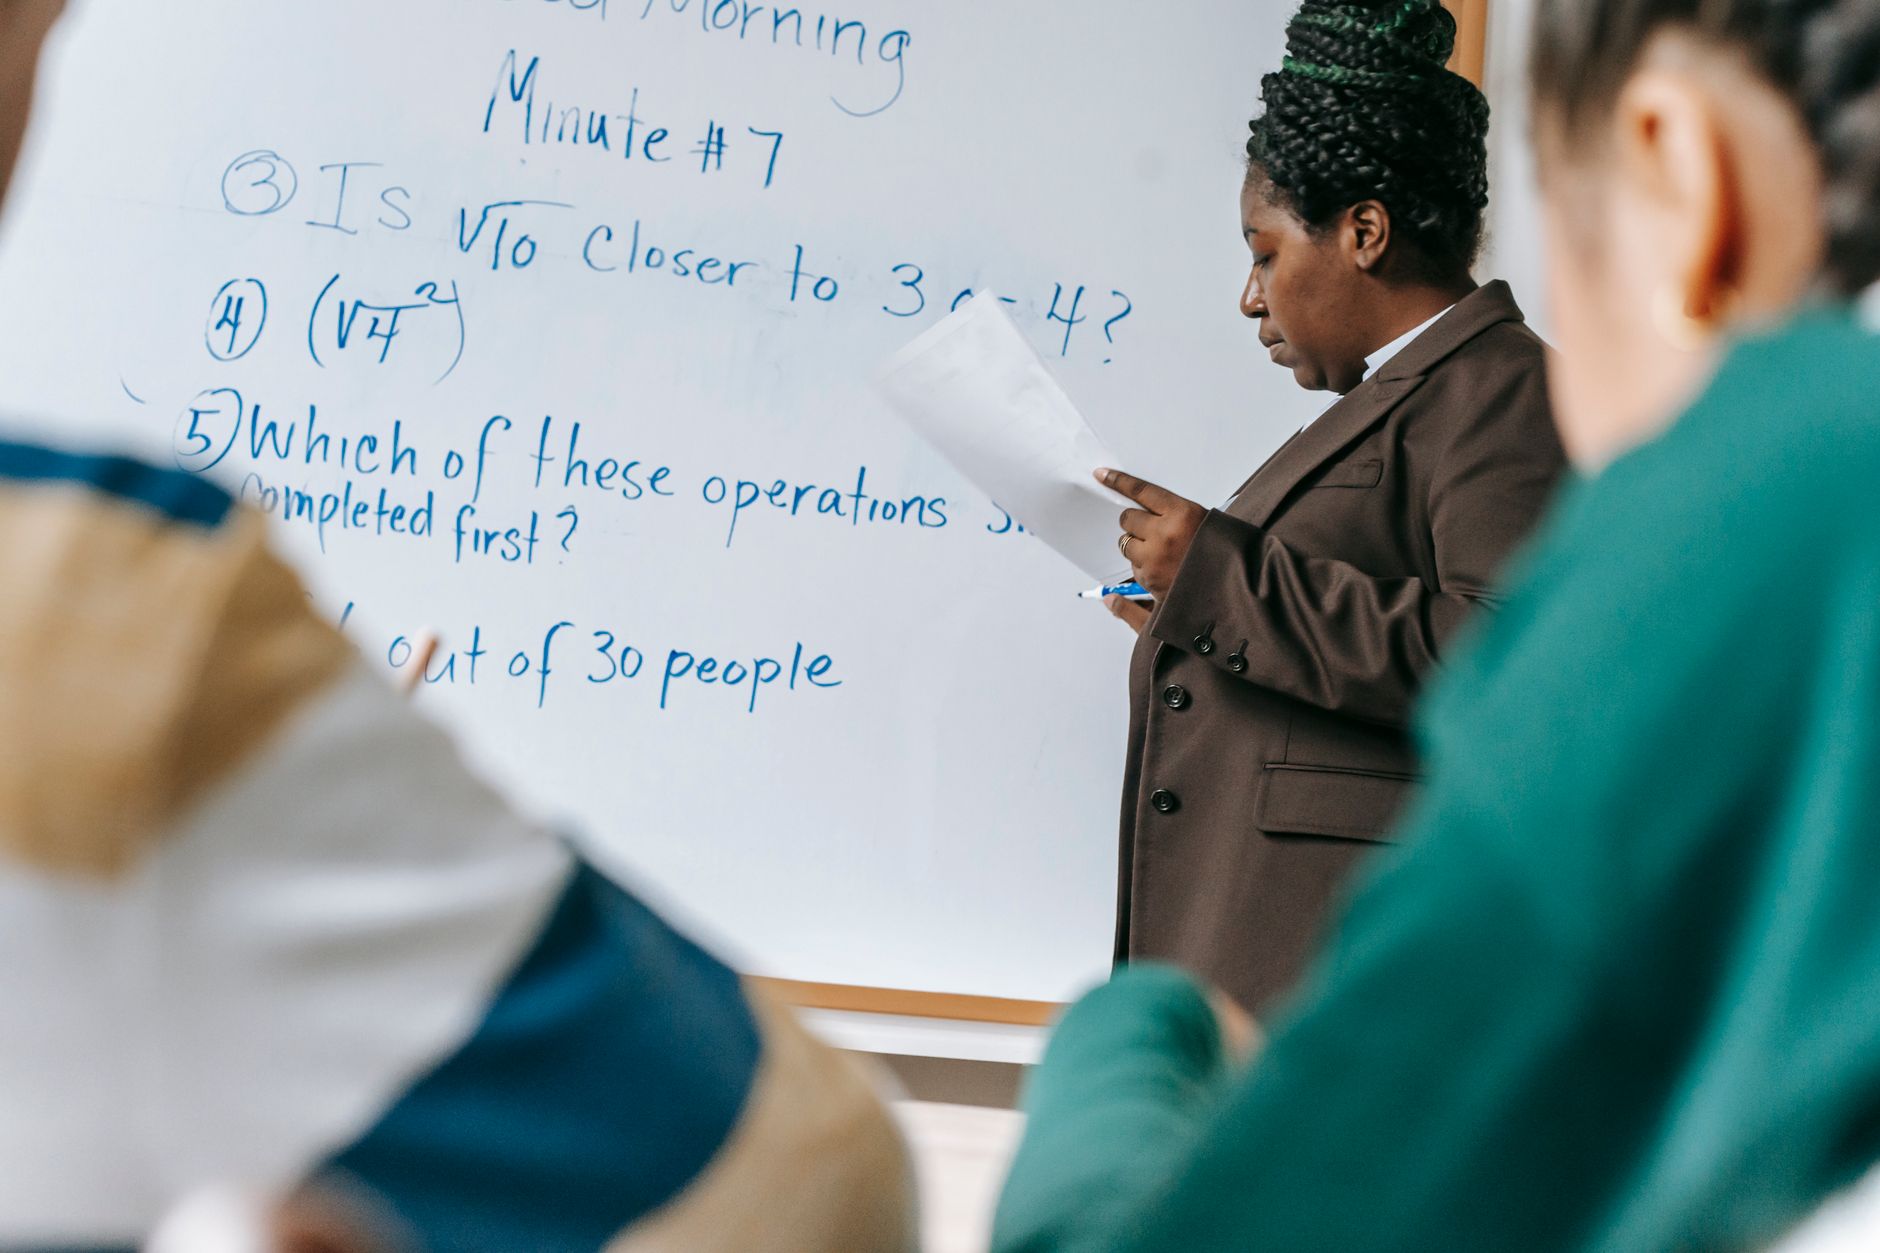 Morning
Minute #7
③ Is √10 closer to 3 or 4?
④ (√4²)
⑤ Which of these operations
completed first?
out of 30 people